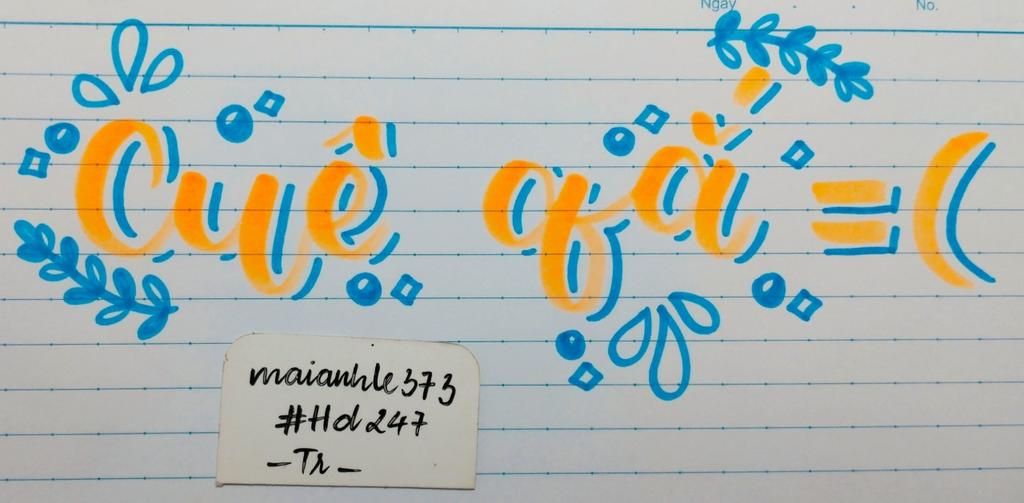 Ngày No.
Cyê qắ =(
maianhle373
#Hd247
-Tr-